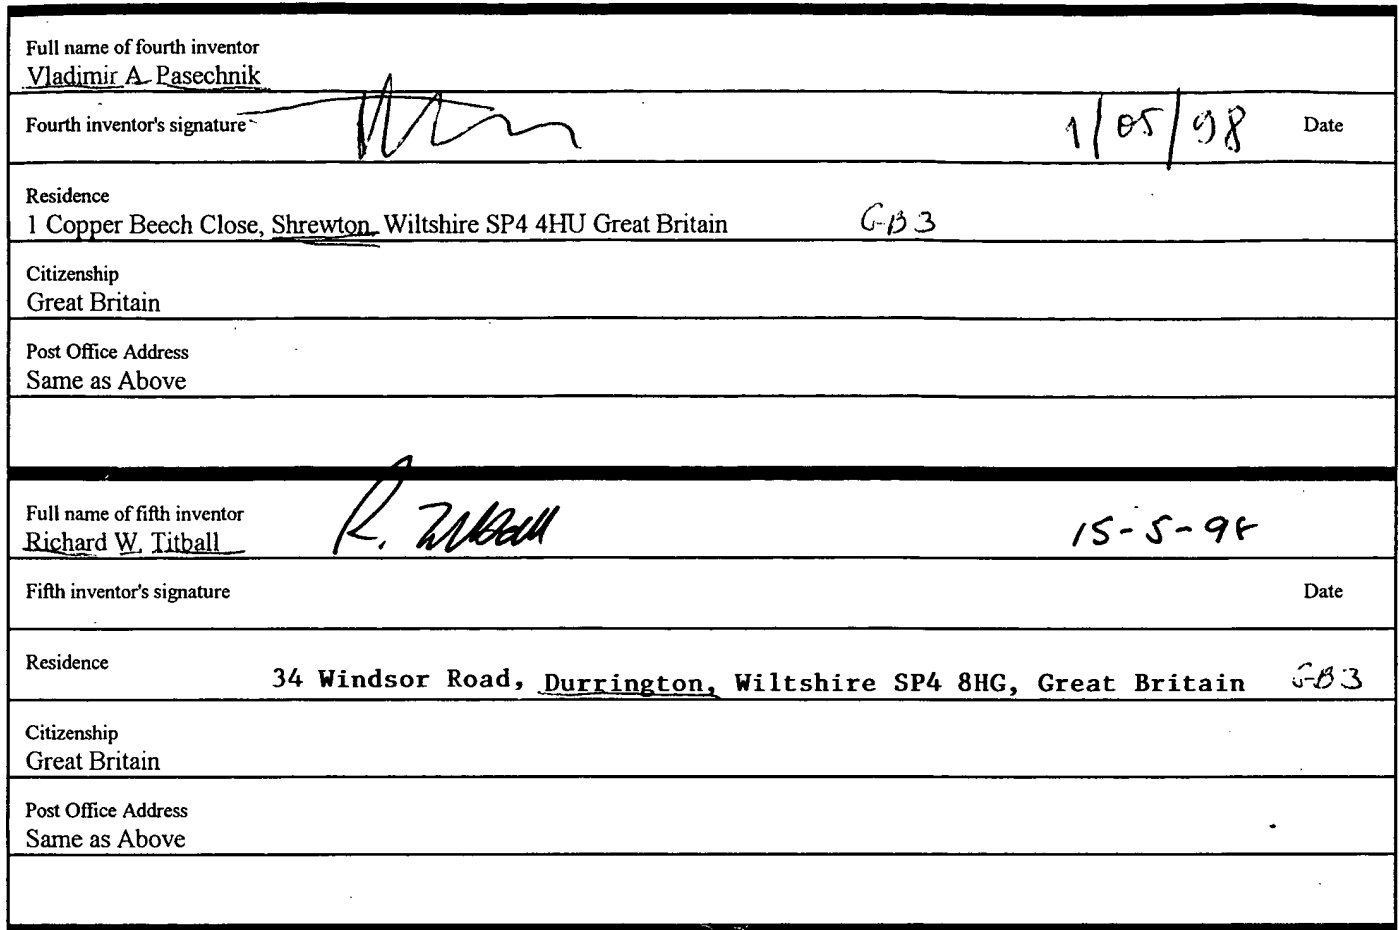 Full name of fourth inventor
Vladimir A. Pasechnik
Fourth inventor's signature 1/05/98 Date
Residence
1 Copper Beech Close, Shrewton, Wiltshire SP4 4HU Great Britain GB3
Citizenship
Great Britain
Post Office Address
Same as Above
Full name of fifth inventor
Richard W. Titball R. Titball 15-5-98
Fifth inventor's signature Date
Residence
34 Windsor Road, Durrington, Wiltshire SP4 8HG, Great Britain GB3
Citizenship
Great Britain
Post Office Address
Same as Above